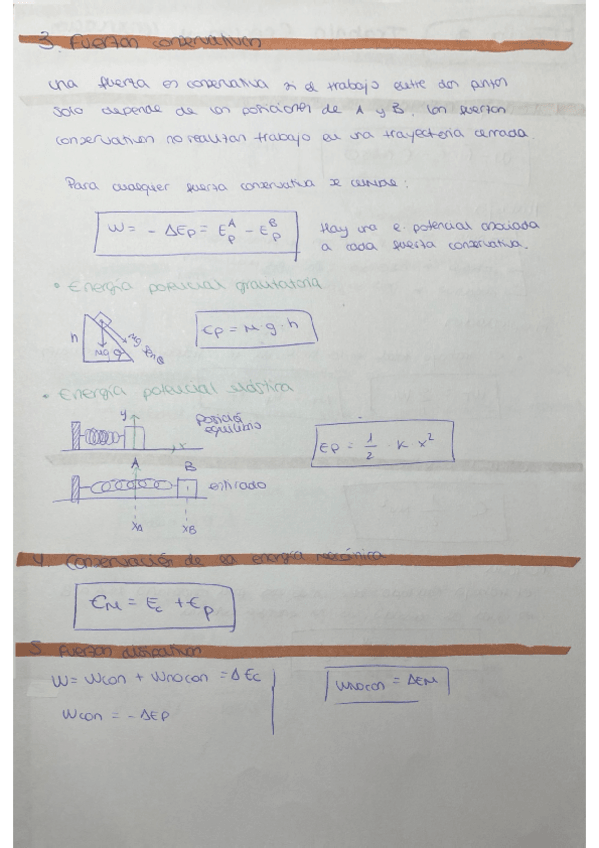 3. Fuerzas conservativas
Una fuerza es conservativa si el trabajo entre dos puntos
solo depende de las posiciones de A y B. Las fuerzas
conservativas no realizan trabajo en una trayectoria cerrada.
Para cualquier fuerza conservativa se cumple:
W = - ΔEp = E_p^A - E_p^B
Hay una e. potencial asociada
a cada fuerza conservativa.
• Energía potencial gravitatoria
h
Mg
Mg
Ep = M·g·h
• Energía potencial elástica
y
Posición
equilibrio
x
Ep = 1/2 · K · x²
A B
estirado
xA xB
4. Conservación de la energía mecánica
EM = Ec + Ep
5. Fuerzas disipativas
W = Wcon + Wnocon = ΔEc
Wnocon = ΔEM
Wcon = - ΔEp